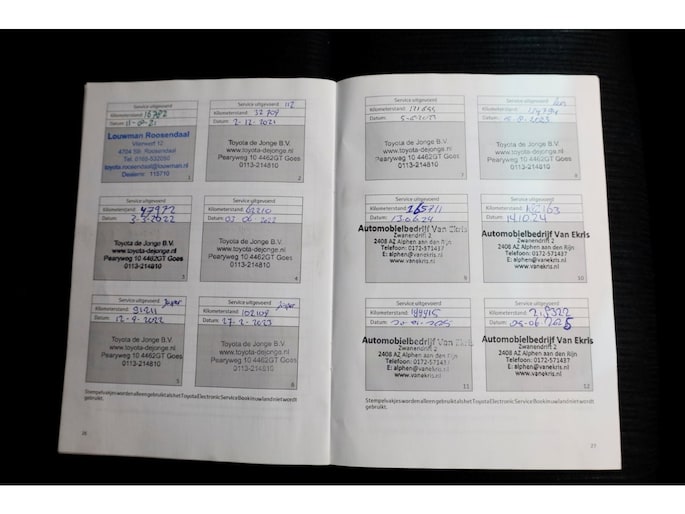 Service uitgevoerd
Kilometerstand:
Datum:
Louwman Roosendaal
Vlierwerf 12
4704 SB Roosendaal
toyota.roosendaal@louwman.nl
1
Service uitgevoerd
Kilometerstand: 32704
Datum: 2-12-2021
Toyota de Jonge B.V.
www.toyota-dejonge.nl
Pearyweg 10 4462GT Goes
0113-214810
2
Service uitgevoerd
Kilometerstand: 47972
Datum: 3-3-2022
Toyota de Jonge B.V.
www.toyota-dejonge.nl
Pearyweg 10 4462GT Goes
0113-214810
3
Service uitgevoerd
Kilometerstand: 62210
Datum: 03-06-2022
Toyota de Jonge B.V.
www.toyota-dejonge.nl
Pearyweg 10 4462GT Goes
0113-214810
4
Service uitgevoerd
Kilometerstand: 91211
Datum: 12-9-2022
Toyota de Jonge B.V.
www.toyota-dejonge.nl
Pearyweg 10 4462GT Goes
0113-214810
5
Service uitgevoerd
Kilometerstand: 102104
Datum: 27-2-2023
Toyota de Jonge B.V.
www.toyota-dejonge.nl
Pearyweg 10 4462GT Goes
0113-214810
6
Stempelvakjes worden alleen gebruikt als het Toyota Electronic Service Book in uw land niet wordt
gebruikt.
26
Service uitgevoerd
Kilometerstand:
Datum:
Toyota de Jonge B.V.
www.toyota-dejonge.nl
Pearyweg 10 4462GT Goes
0113-214810
7
Service uitgevoerd
Kilometerstand:
Datum:
Toyota de Jonge B.V.
www.toyota-dejonge.nl
Pearyweg 10 4462GT Goes
0113-214810
8
Service uitgevoerd
Kilometerstand: 165711
Datum: 13.06.24
Automobielbedrijf Van Ekris
Zwanendrift 2
2408 AZ Alphen aan den Rijn
Telefoon: 0172-571437
E: alphen@vanekris.nl
www.vanekris.nl
9
Service uitgevoerd
Kilometerstand:
Datum: 14.10.24
Automobielbedrijf Van Ekris
Zwanendrift 2
2408 AZ Alphen aan den Rijn
Telefoon: 0172-571437
E: alphen@vanekris.nl
www.vanekris.nl
10
Service uitgevoerd
Kilometerstand: 199915
Datum:
Automobielbedrijf Van Ekris
Zwanendrift 2
2408 AZ Alphen aan den Rijn
Telefoon: 0172-571437
E: alphen@vanekris.nl
www.vanekris.nl
11
Service uitgevoerd
Kilometerstand:
Datum:
Automobielbedrijf Van Ekris
Zwanendrift 2
2408 AZ Alphen aan den Rijn
Telefoon: 0172-571437
E: alphen@vanekris.nl
www.vanekris.nl
12
Stempelvakjes worden alleen gebruikt als het Toyota Electronic Service Book in uw land niet wordt
gebruikt.
27